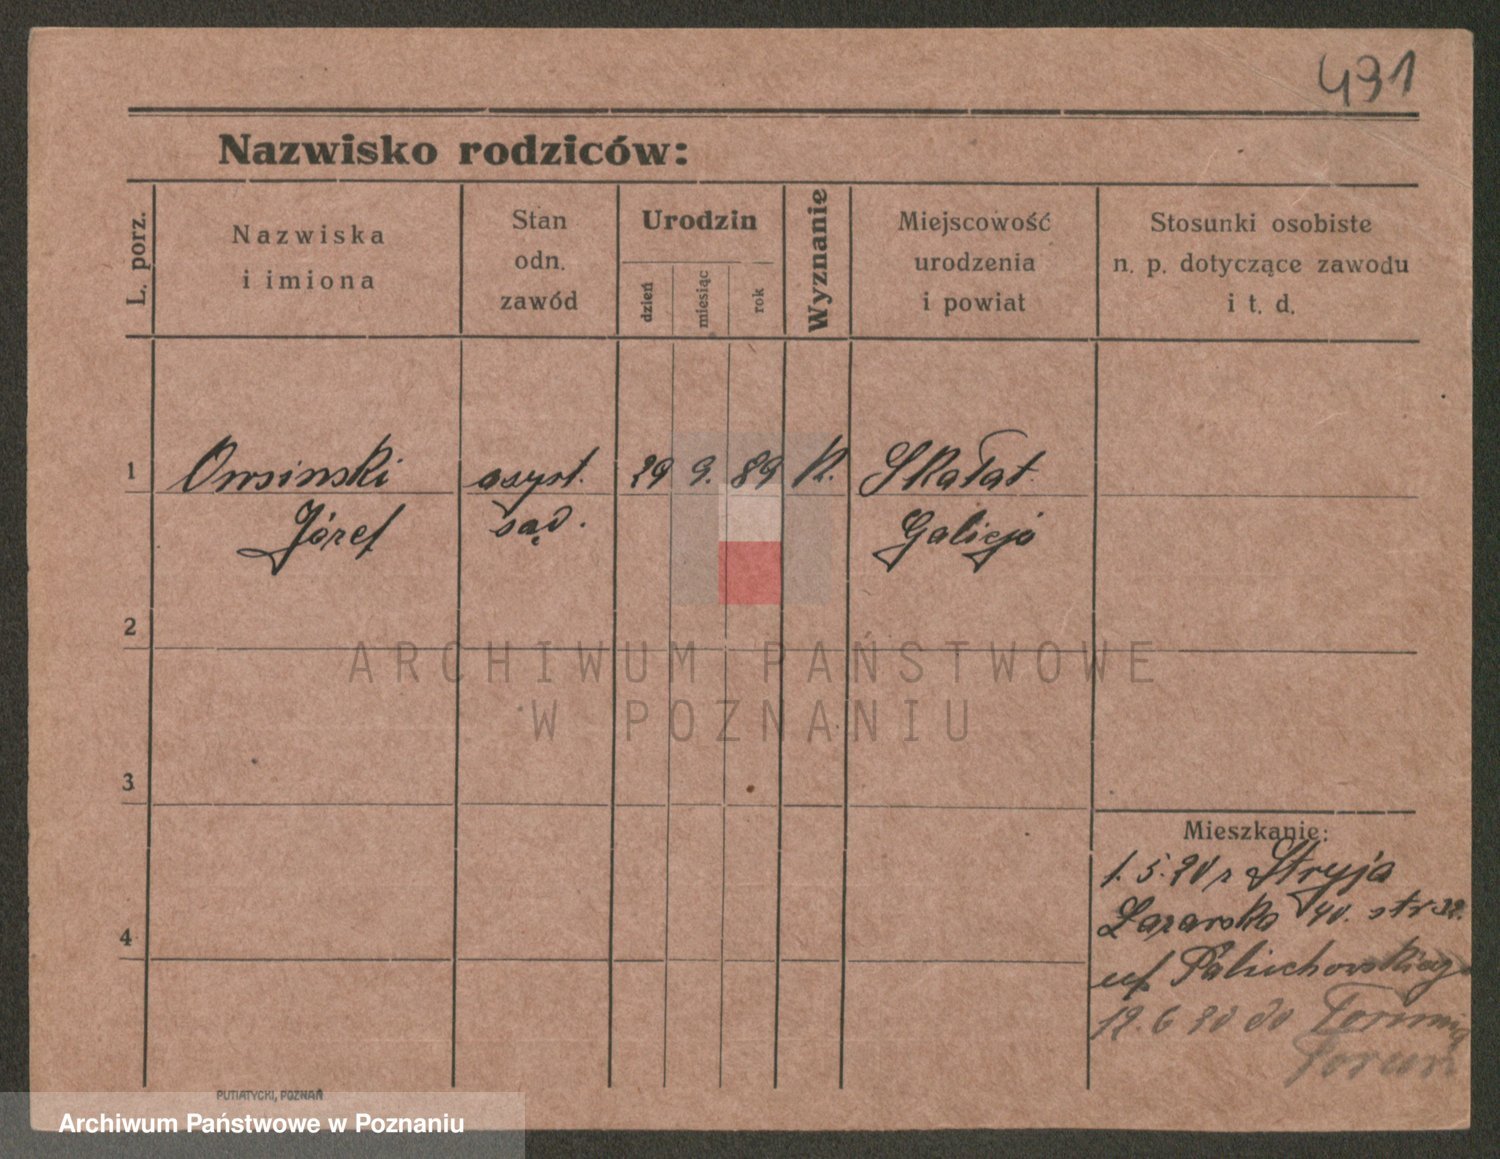 491
Nazwisko rodziców:
L. porz.
Nazwiska
i imiona
Stan
odn.
zawód
Urodzin
dzień
miesiąc
rok
Wyznanie
Miejscowość
urodzenia
i powiat
Stosunki osobiste
n. p. dotyczące zawodu
i t. d.
1 Owsinski asyst. 29 9. 89 K. Skałat
Józef sąd. Galicja
2
3
4
Mieszkanie:
1. 5. 20 z Stryja
Łazarska
12. 6 20 do
ARCHIWUM PAŃSTWOWE
W POZNANIU
PUTIATYCKI, POZNAŃ
Archiwum Państwowe w Poznaniu